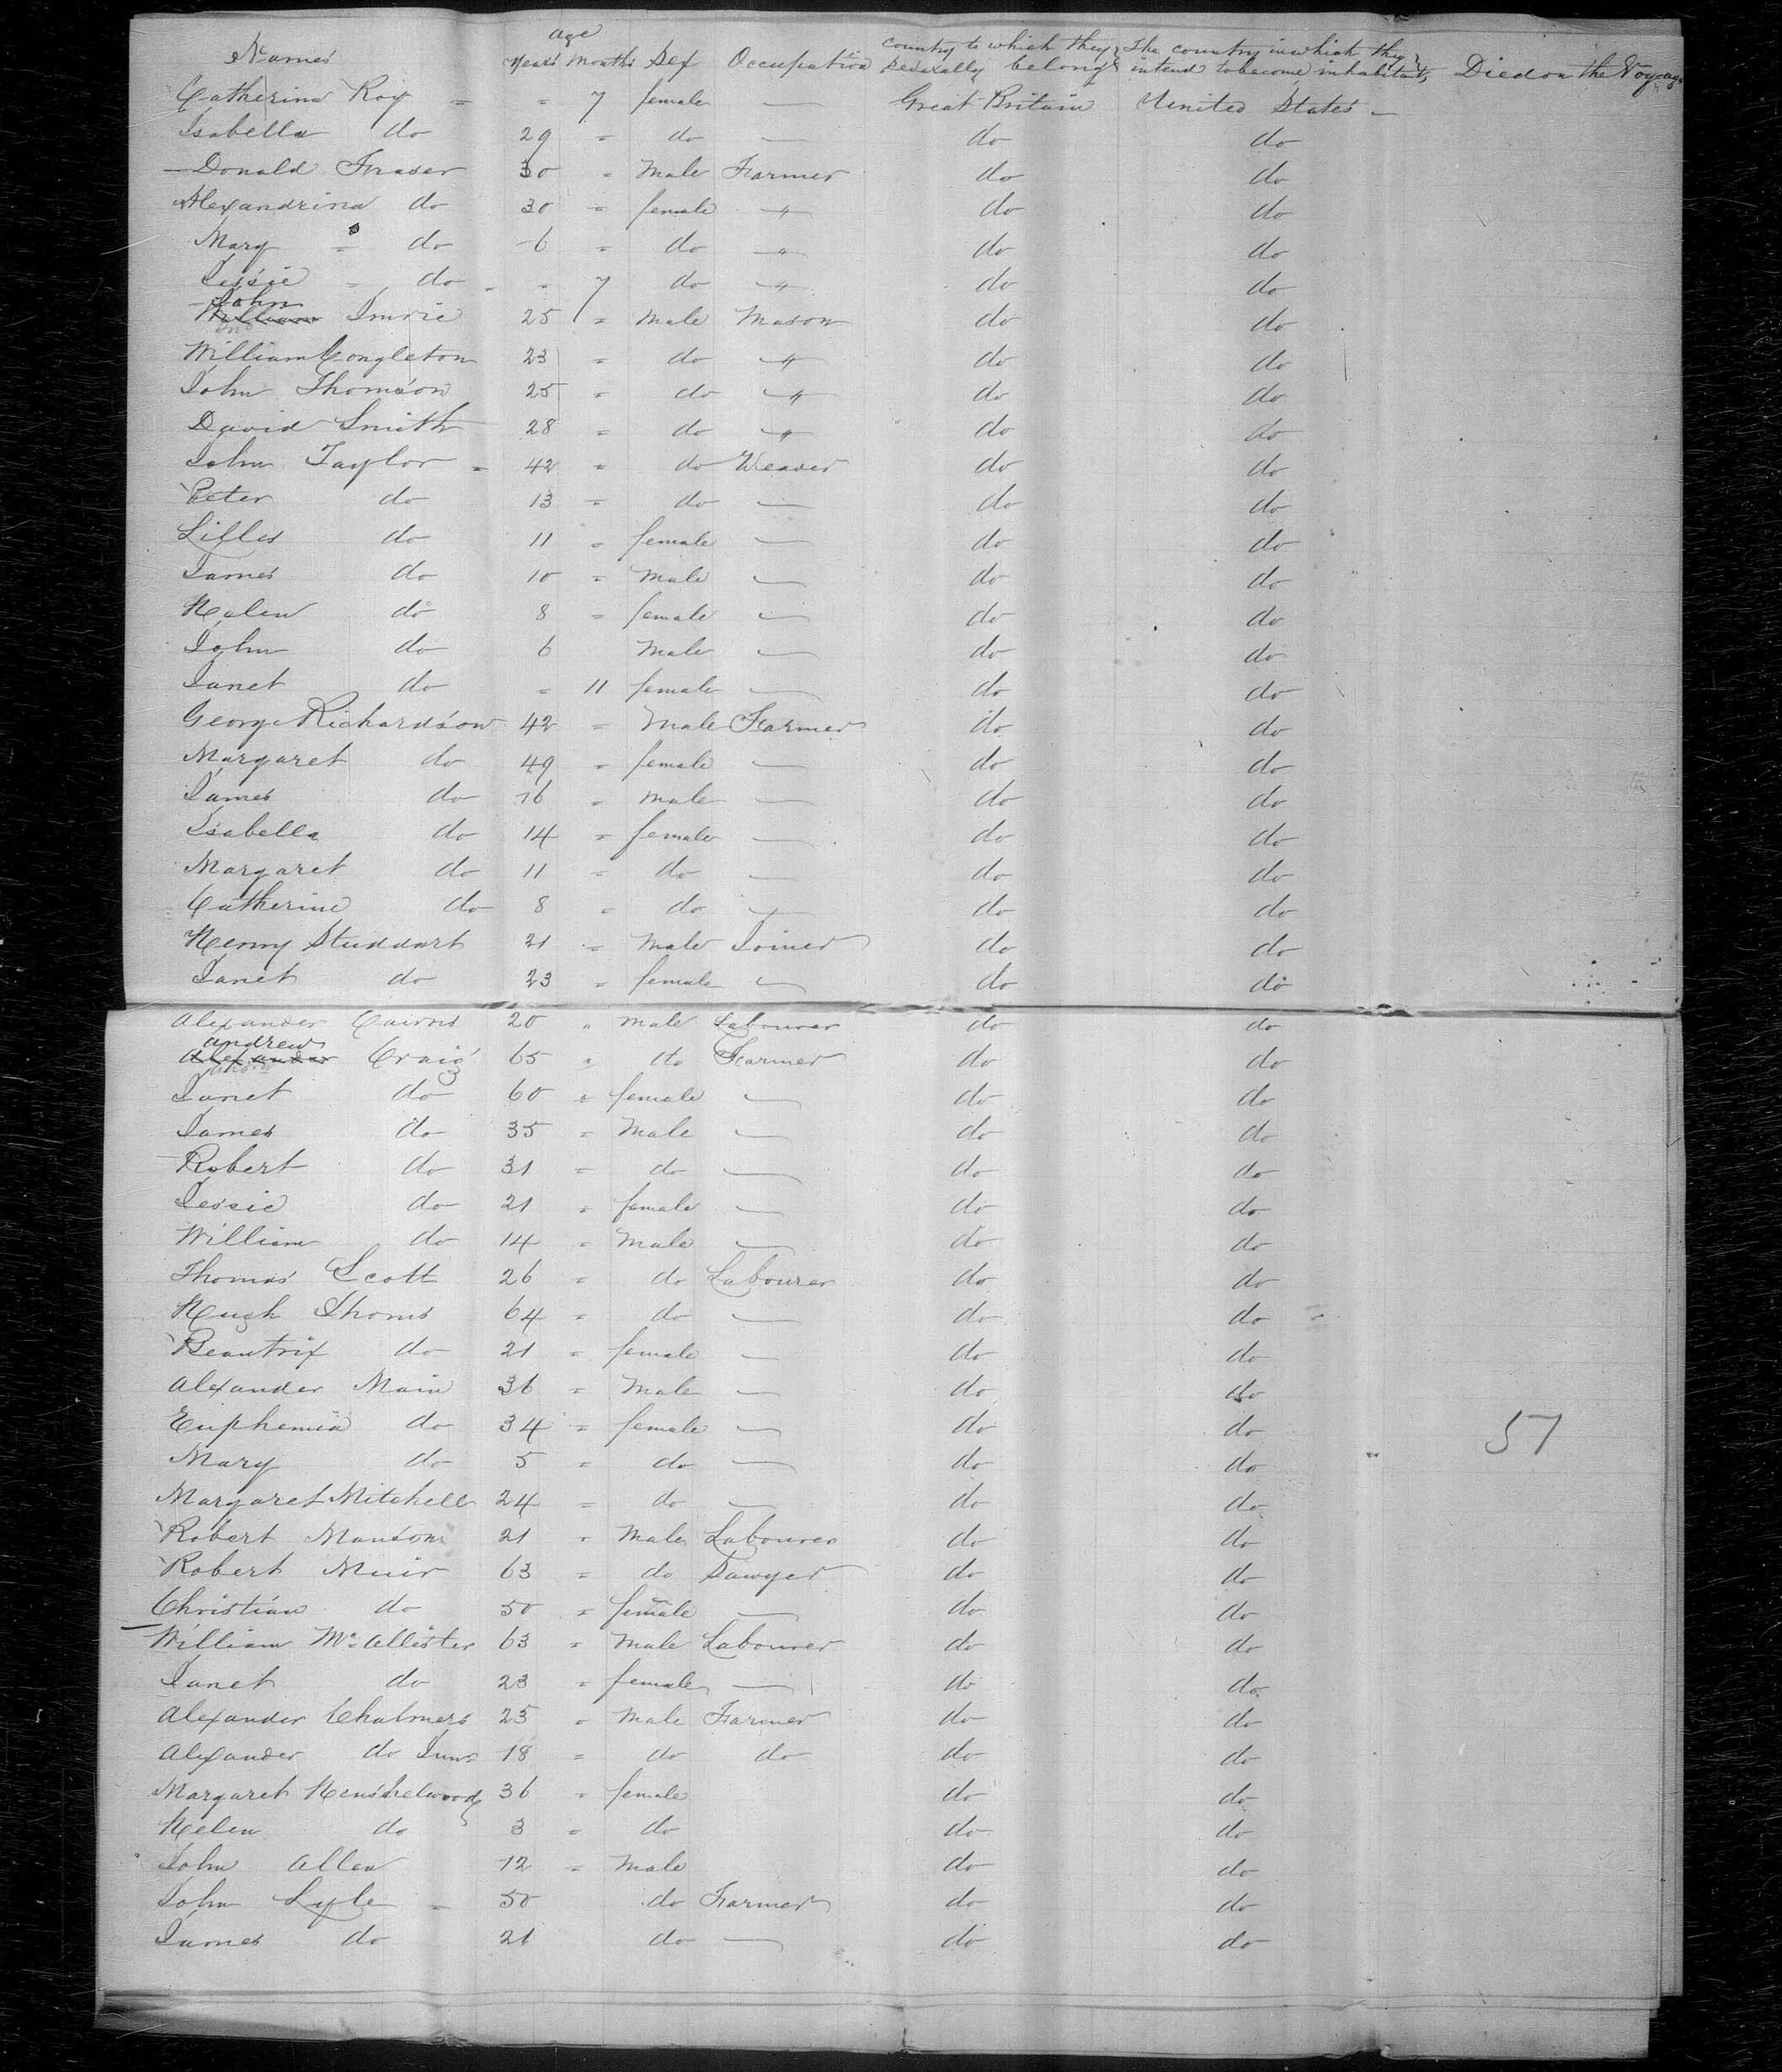 Names age Years Months Sex Occupation Country to which they severally belong The country in which they intend to become inhabitants Died on the Voyage
Catherine Roy = = 7 female — Great Britain United States —
Isabella do 29 = do — do do
Donald Fraser 30 = Male Farmer do do
Alexandrina do 30 = female " do do
Mary = do 6 = do " do do
Jessie = do = = 7 do " do do
John
William Imrie 25 = Male Mason do do
William Congleton 23 = do " do do
John Thomson 25 = do " do do
David Smith 28 = do " do do
John Taylor = 42 = do Weaver do do
Peter do 13 = do — do do
Lillas do 11 = female — do do
James do 10 = Male — do do
Helen do 8 = female — do do
John do 6 Male — do do
Janet do = 11 female — do do
George Richardson 42 = Male Farmer do do
Margaret do 49 = female — do do
James do 16 = Male — do do
Isabella do 14 = female — do do
Margaret do 11 = do — do do
Catherine do 8 = do — do do
Henry Studdart 21 = Male Joiner do do
Janet do 23 = female — do do
Alexander Cairns 20 " Male Labourer do do
Andrew
Alexander Craig 65 = do Farmer do do
Janet do 60 = female — do do
James do 35 = Male — do do
Robert do 31 = do — do do
Jessie do 21 = female — do do
William do 14 = Male — do do
Thomas Scott 26 = do Labourer do do
Hugh Thoms 64 = do — do do
Beautrix do 21 = female — do do
Alexander Main 36 = Male — do do
Euphemia do 34 = female — do do 57
Mary do 5 = do — do do
Margaret Mitchell 24 = do — do do
Robert Manson 21 = Male Labourer do do
Robert Muir 63 = do Sawyer do do
Christian do 50 = female — do do
William Mc Allister 63 = Male Labourer do do
Janet do 23 = female — do do
Alexander Chalmers 25 = Male Farmer do do
Alexander do Junr 18 = do do do do
Margaret Henshelwood 36 = female do do
Helen do 3 = do do do
John Allen 12 = Male do do
John Lyle = 50 do Farmer do do
James do 21 do — do do